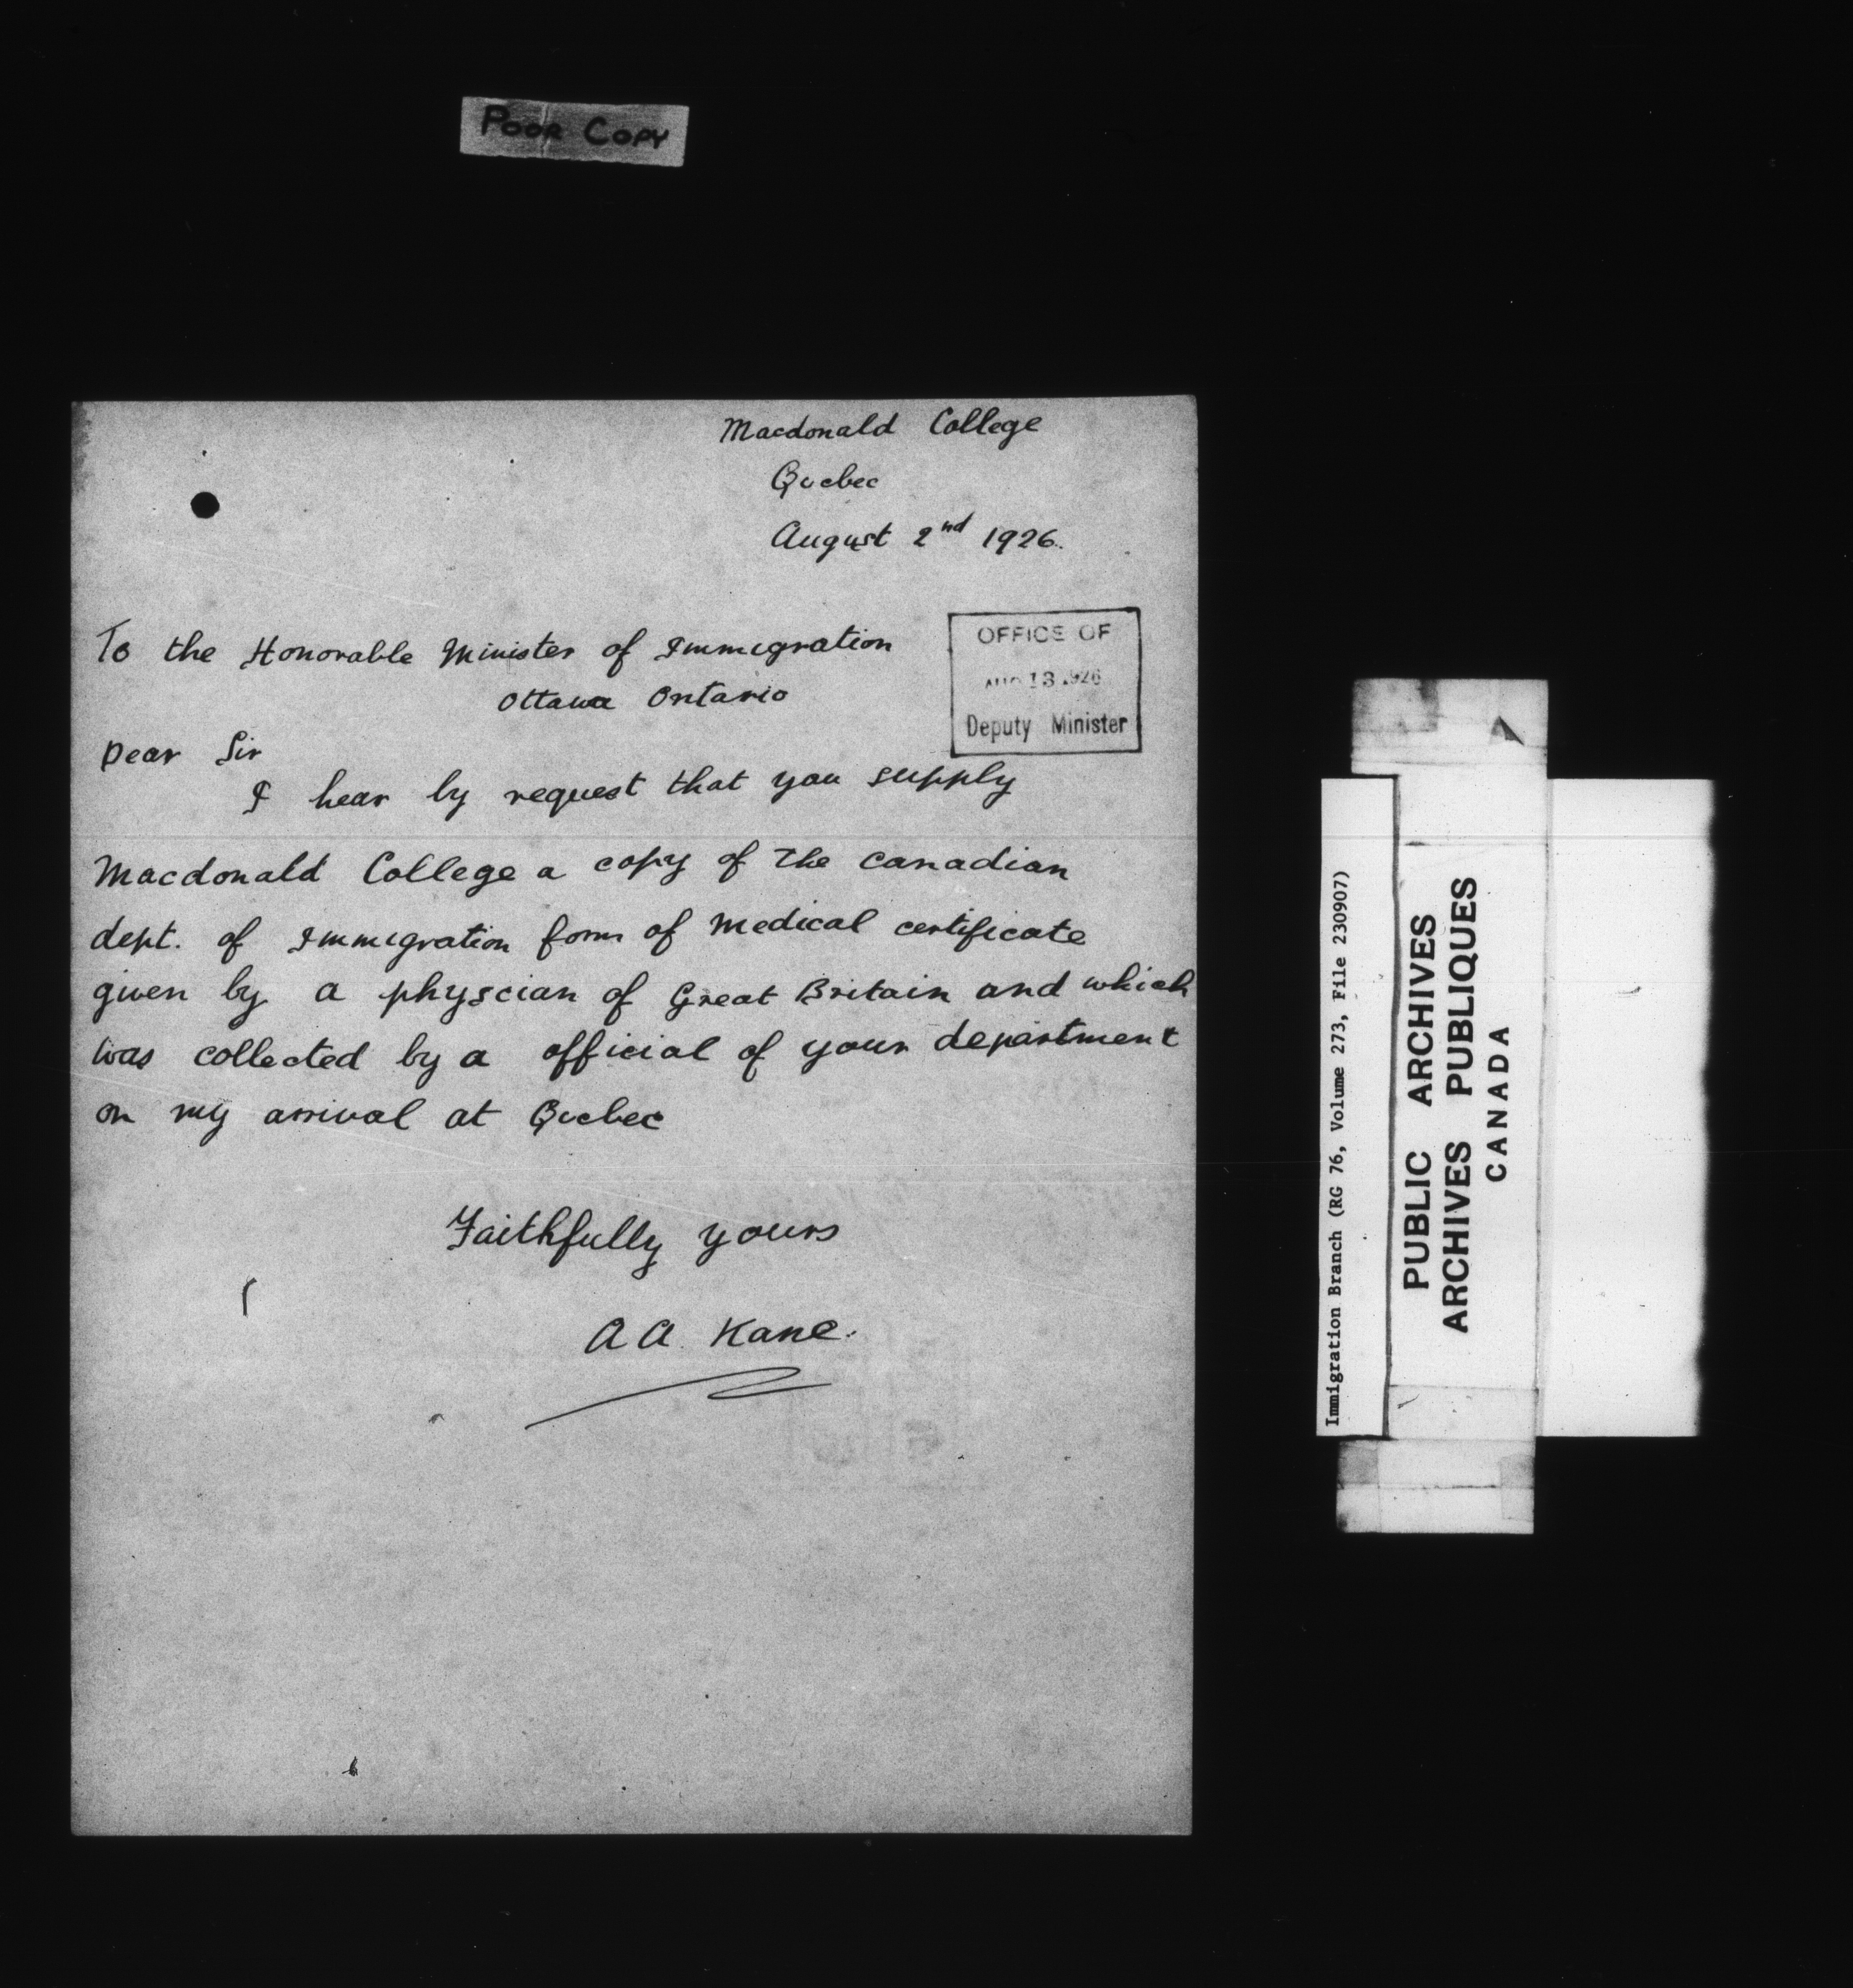 POOR COPY
Macdonald College
Quebec
August 2nd 1926.
To the Honorable Minister of Immigration
Ottawa Ontario
OFFICE OF
AUG 13 1926
Deputy Minister
Dear Sir
I hear by request that you supply
Macdonald College a copy of the Canadian
dept. of Immigration form of medical certificate
given by a physcian of Great Britain and which
was collected by a official of your department
on my arrival at Quebec
Faithfully yours
A A. Kane.
Immigration Branch (RG 76, Volume 273, File 230907)
PUBLIC ARCHIVES
ARCHIVES PUBLIQUES
CANADA